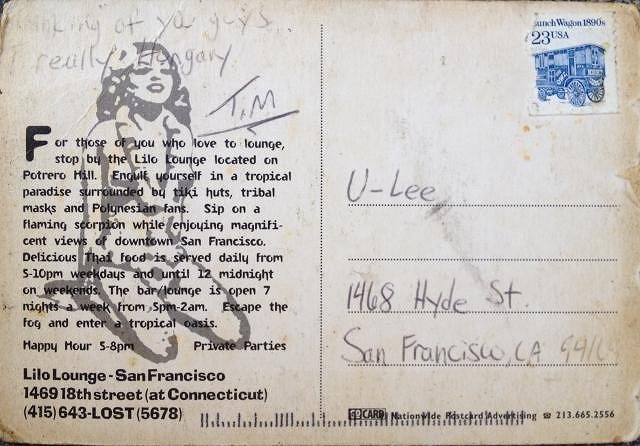 Thinking of you guys...
really, Hungary
TIM
For those of you who love to lounge,
stop by the Lilo Lounge located on
Potrero Hill. Engulf yourself in a tropical
paradise surrounded by tiki huts, tribal
masks and Polynesian fans. Sip on a
flaming scorpion while enjoying magnifi-
cent views of downtown San Francisco.
Delicious Thai food is served daily from
5-10pm weekdays and until 12 midnight
on weekends. The bar/lounge is open 7
nights a week from 5pm-2am. Escape the
fog and enter a tropical oasis.
Happy Hour 5-8pm Private Parties
Lilo Lounge - San Francisco
1469 18th street (at Connecticut)
(415) 643-LOST (5678)
Lunch Wagon 1890s
23 USA
U-Lee
1468 Hyde St.
San Francisco, CA
CARD Nationwide Postcard Advertising ☎ 213.665.2556